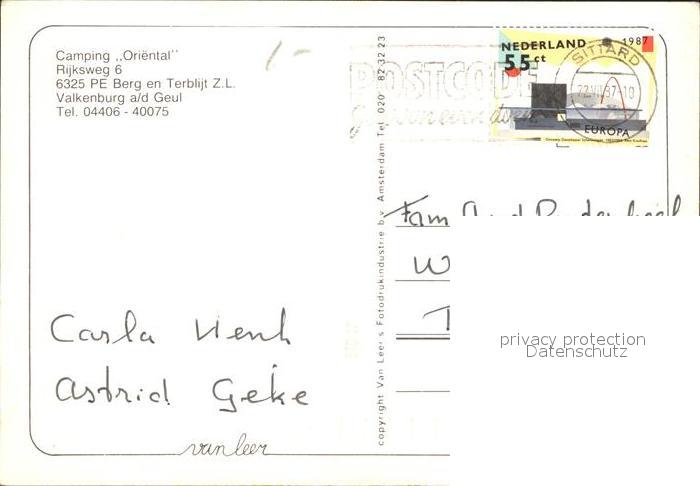 Camping „Oriëntal"
Rijksweg 6
6325 PE Berg en Terblijt Z.L.
Valkenburg a/d Geul
Tel. 04406 - 40075
1-
POSTCODE
gewoon even doen
NEDERLAND
1987
55 ct
EUROPA
SITTARD
22 VII 87-10
copyright Van Leer's Fotodrukindustrie b.v. Amsterdam Tel. 020 - 82 32 23
Fam
W
T
privacy protection
Datenschutz
Carla Henk
Astrid Geke
van leer